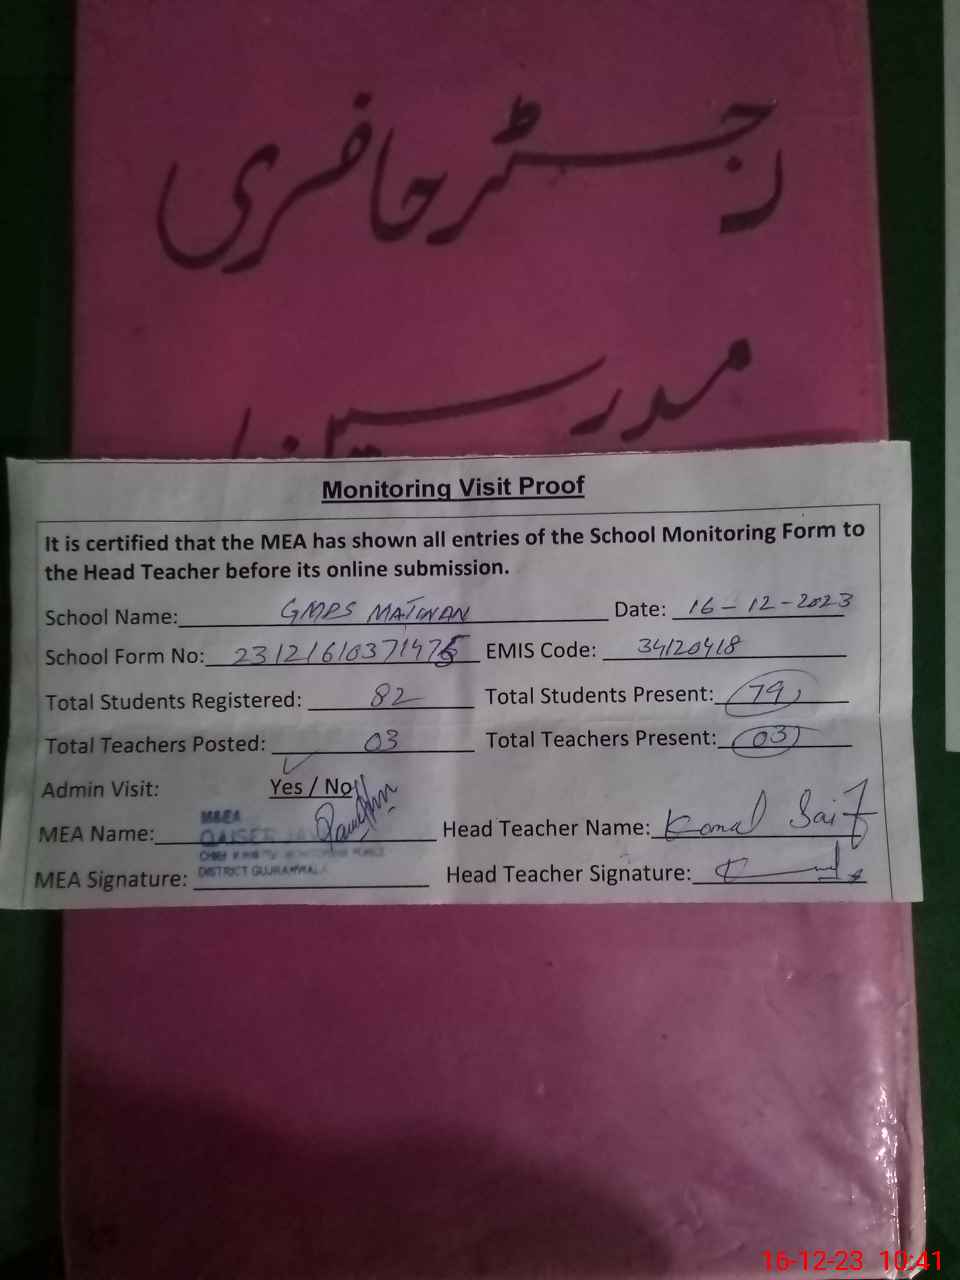 رجسٹر حاضری
مدرسین
Monitoring Visit Proof
It is certified that the MEA has shown all entries of the School Monitoring Form to
the Head Teacher before its online submission.
School Name: GMPS MATINAN Date: 16-12-2023
School Form No: 23121610371475 EMIS Code: 34120418
Total Students Registered: 82 Total Students Present: 79
Total Teachers Posted: 03 Total Teachers Present: 03
Admin Visit: Yes / No
M&EA
MEA Name: QAISER Head Teacher Name: Komal Saif
CHIEF MINISTER MONITORING FORCE
DISTRICT GUJRANWALA
MEA Signature: Head Teacher Signature:
16-12-23 10:41